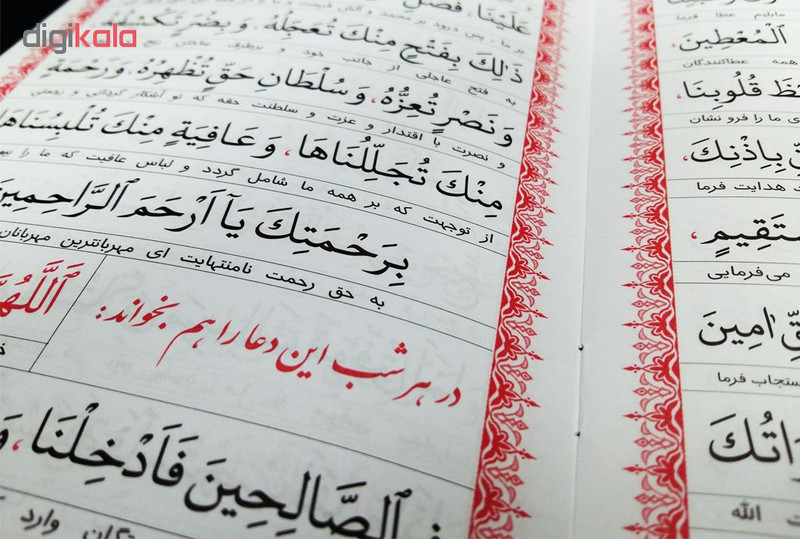 digikala
عَلَيْنَا، فَصَلِّ
ذٰلِكَ بِفَتْحٍ مِنْكَ تُعَجِّلُهُ، وَبِضُرٍّ تَكْشِفُهُ
به فتح عاجلی از جانب خود و برطرف ساختن
وَ نَصْرٍ تُعِزُّهُ، وَ سُلْطَانِ حَقٍّ تُظْهِرُهُ، وَرَحْمَةٍ
و نصرت با اقتدار و عزت و سلطنت حقه که تو آشکار گردانی و رحمتی
مِنْكَ تُجَلِّلُنَاهَا، وَ عَافِيَةٍ مِنْكَ تُلْبِسُنَاهَا
از توجهت که بر همه ما شامل گردد و لباس عافیت که ما را
بِرَحْمَتِكَ يَآ اَرْحَمَ الرَّاحِمِينَ
به حق رحمت نامنتهایت ای مهربانترین مهربانان
در هر شب این دعا را هم بخواند:
الصَّالِحِينَ فَاَدْخِلْنَا، وَ
وارد
مایلیم عطا فرما
الْمُعْطِينَ،
همه عطاکنندگان
قُلُوبِنَا،
ی ما را فرو نشان
بِاِذْنِكَ،
هدایت فرما
مُسْتَقِيمٍ،
می‌فرمایی
اٰمِينَ
مستجاب فرما
الله